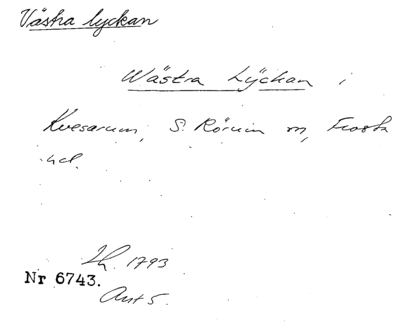 Västra lyckan
Wästra Lÿckan i
Kvesarum, S. Rörum sn, Frosta
hd.
Lh. 1793
Nr 6743.
Akt 5.